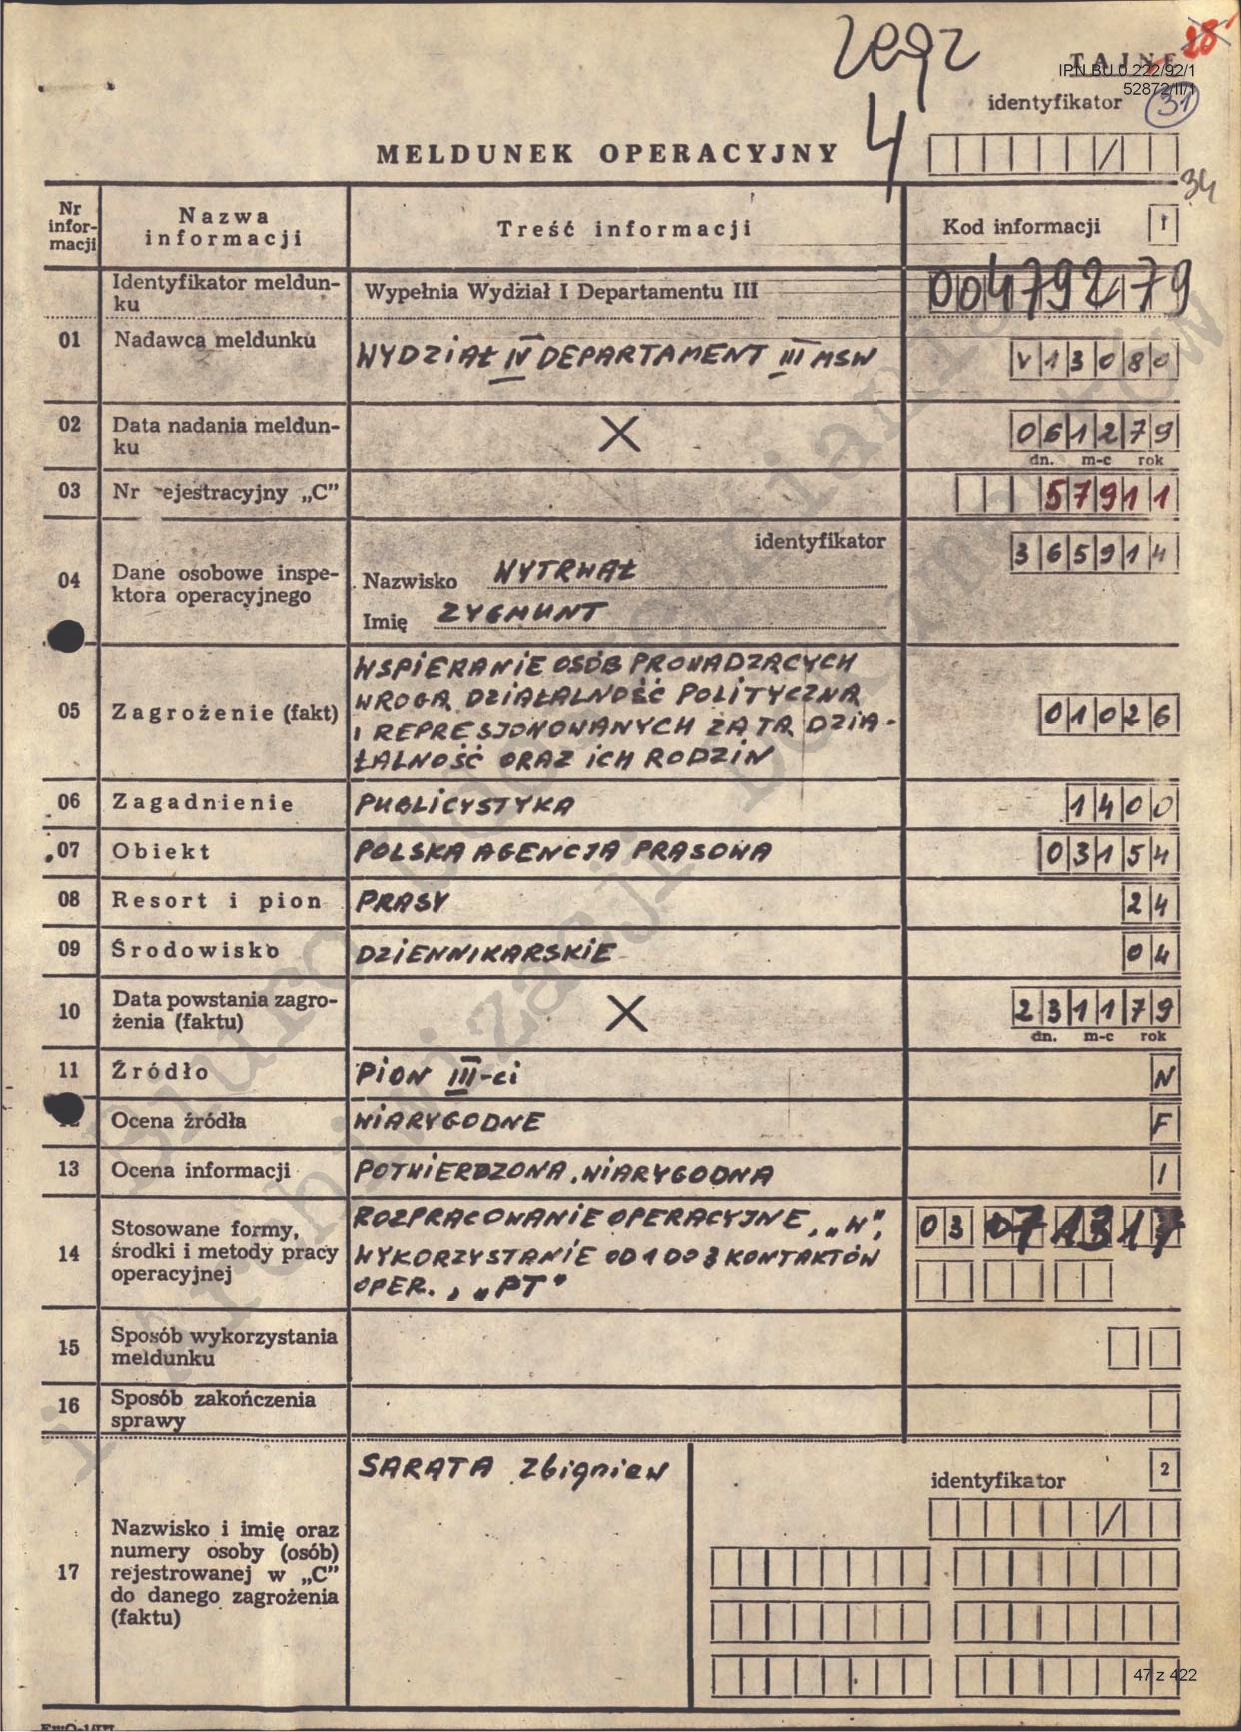 zegz
4
28
TAJNE
IPN BU 0 222/92/1
52872/II/1
identyfikator
31
MELDUNEK OPERACYJNY
34
Nr
infor-
macji
Nazwa
informacji
Treść informacji
Kod informacji
1
Identyfikator meldun-
ku
Wypełnia Wydział I Departamentu III
00479279
01
Nadawca meldunku
WYDZIAŁ IV DEPARTAMENT III MSW
V13080
02
Data nadania meldun-
ku
X
061279
dn. m-c rok
03
Nr rejestracyjny „C”
57911
04
Dane osobowe inspe-
ktora operacyjnego
identyfikator
365914
Nazwisko WYTRWAŁ
Imię ZYGMUNT
05
Zagrożenie (fakt)
WSPIERANIE OSÓB PROWADZĄCYCH
WROGĄ DZIAŁALNOŚĆ POLITYCZNĄ
I REPRESJONOWANYCH ZA TĄ DZIA-
ŁALNOŚĆ ORAZ ICH RODZIN
01026
06
Zagadnienie
PUBLICYSTYKA
1400
07
Obiekt
POLSKA AGENCJA PRASOWA
03154
08
Resort i pion
PRASY
24
09
Środowisko
DZIENNIKARSKIE
04
10
Data powstania zagro-
żenia (faktu)
X
231179
dn. m-c rok
11
Źródło
PION III-ci
N
12
Ocena źródła
WIARYGODNE
F
13
Ocena informacji
POTWIERDZONA, WIARYGODNA
1
14
Stosowane formy,
środki i metody pracy
operacyjnej
ROZPRACOWANIE OPERACYJNE, „W”,
WYKORZYSTANIE OD 1 DO 3 KONTAKTÓW
OPER., „PT”
03 07 13 17
15
Sposób wykorzystania
meldunku
16
Sposób zakończenia
sprawy
17
Nazwisko i imię oraz
numery osoby (osób)
rejestrowanej w „C”
do danego zagrożenia
(faktu)
SARATA Zbigniew
identyfikator
2
47 z 422
Biuro Udostępniania
i Archiwizacji Dokumentów